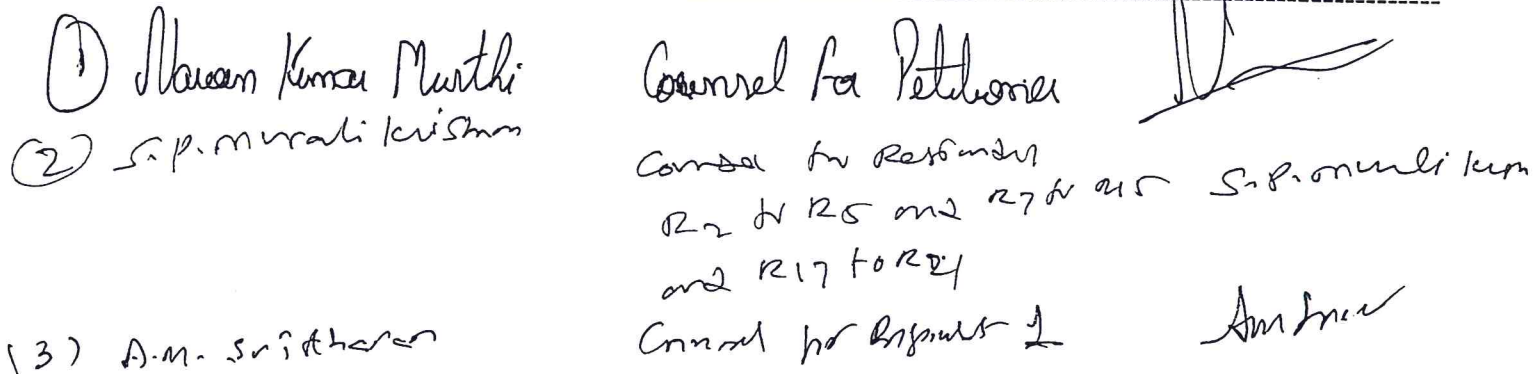 ① Naveen Kumar Murthi Counsel for Petitioner
② S.P. Murali Krishnan Counsel for Respondent
R2 to R5 and R7 to R15 S.P. Murali
and R17 to R21
(3) A.M. Sritharan Counsel for Respondent 1